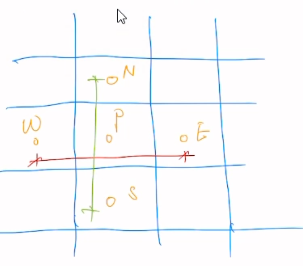 N
W P E
S